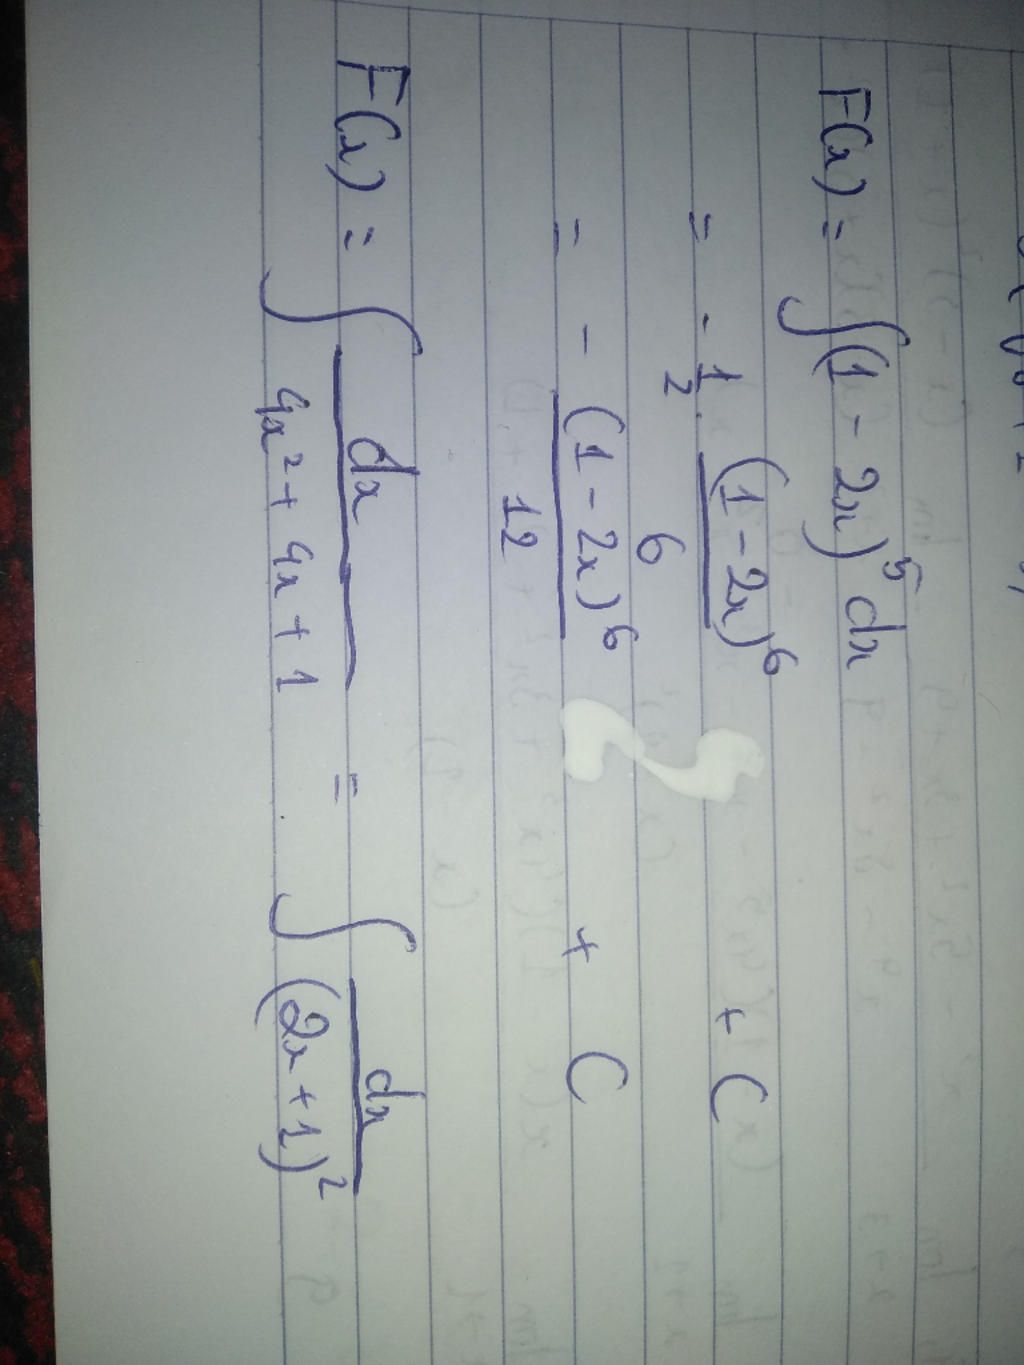 F(x) = ∫(1 - 2x)⁵ dx
= - 1/2 . (1 - 2x)⁶/6 + C
= - (1 - 2x)⁶/12 + C
F(x) = ∫ dx/(4x² + 4x + 1) = ∫ dx/(2x + 1)²